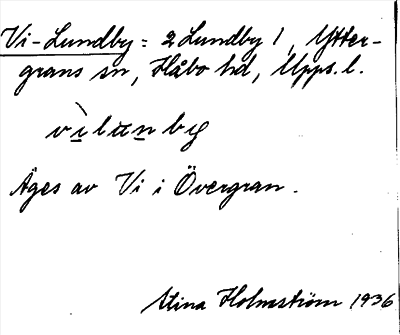 Vi-Lundby = 2 Lundby 1, Ytter-
grans sn, Håbo hd, Upps. l.
vìlunby
Äges av Vi i Övergran.
Stina Holmström 1936